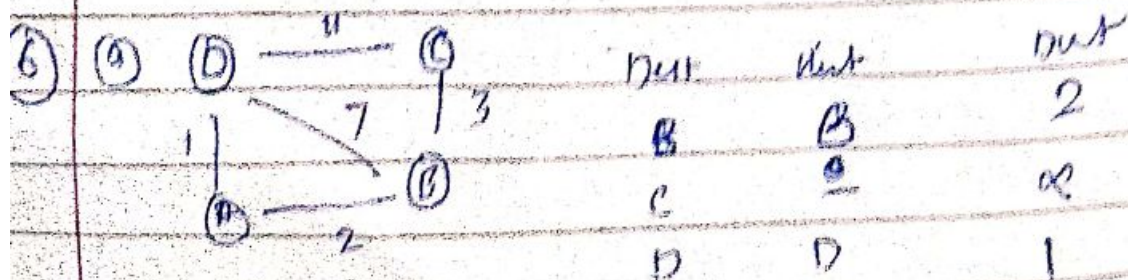 6) a) D 11 C
7 3
1
A 2 B
Dest Next Dist
B B 2
C - ∝
D D 1